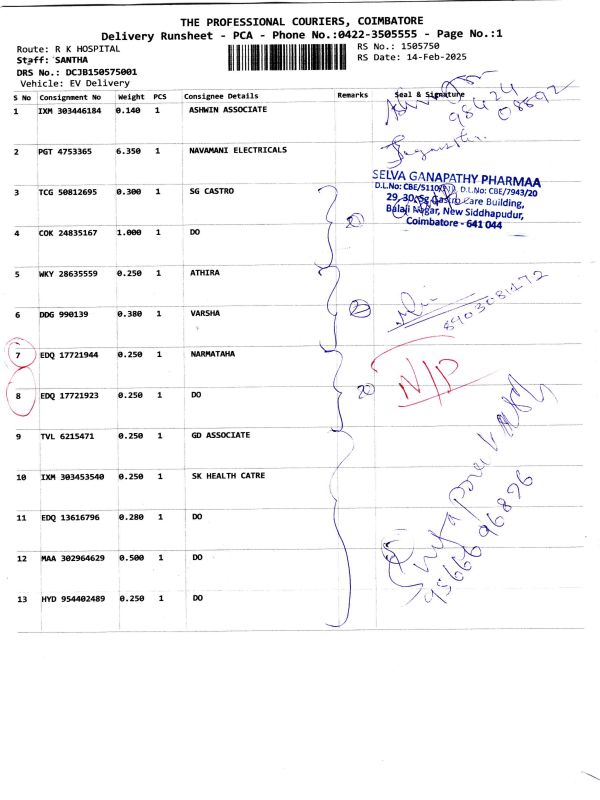 THE PROFESSIONAL COURIERS, COIMBATORE
Delivery Runsheet - PCA - Phone No.:0422-3505555 - Page No.:1
Route: R K HOSPITAL
RS No.: 1505750
Staff: SANTHA
RS Date: 14-Feb-2025
DRS No.: DCJB150575001
Vehicle: EV Delivery
S No Consignment No Weight PCS Consignee Details Remarks Seal & Signature
1 IXM 303446184 0.140 1 ASHWIN ASSOCIATE
98424
08892
2 PGT 4753365 6.350 1 NAVAMANI ELECTRICALS
SELVA GANAPATHY PHARMAA
D.L.No: CBE/5110/ D.L.No: CBE/7943/20
29, 30, Sg Gastro Care Building,
Balaji Nagar, New Siddhapudur,
Coimbatore - 641 044
3 TCG 50812695 0.300 1 SG CASTRO
4 COK 24835167 1.000 1 DO
5 WKY 28635559 0.250 1 ATHIRA
6 DDG 990139 0.380 1 VARSHA
8903081172
7 EDQ 17721944 0.250 1 NARMATAHA
N/D
8 EDQ 17721923 0.250 1 DO
9 TVL 6215471 0.250 1 GD ASSOCIATE
10 IXM 303453540 0.250 1 SK HEALTH CATRE
11 EDQ 13616796 0.280 1 DO
12 MAA 302964629 0.500 1 DO
13 HYD 954402489 0.250 1 DO
9566696896